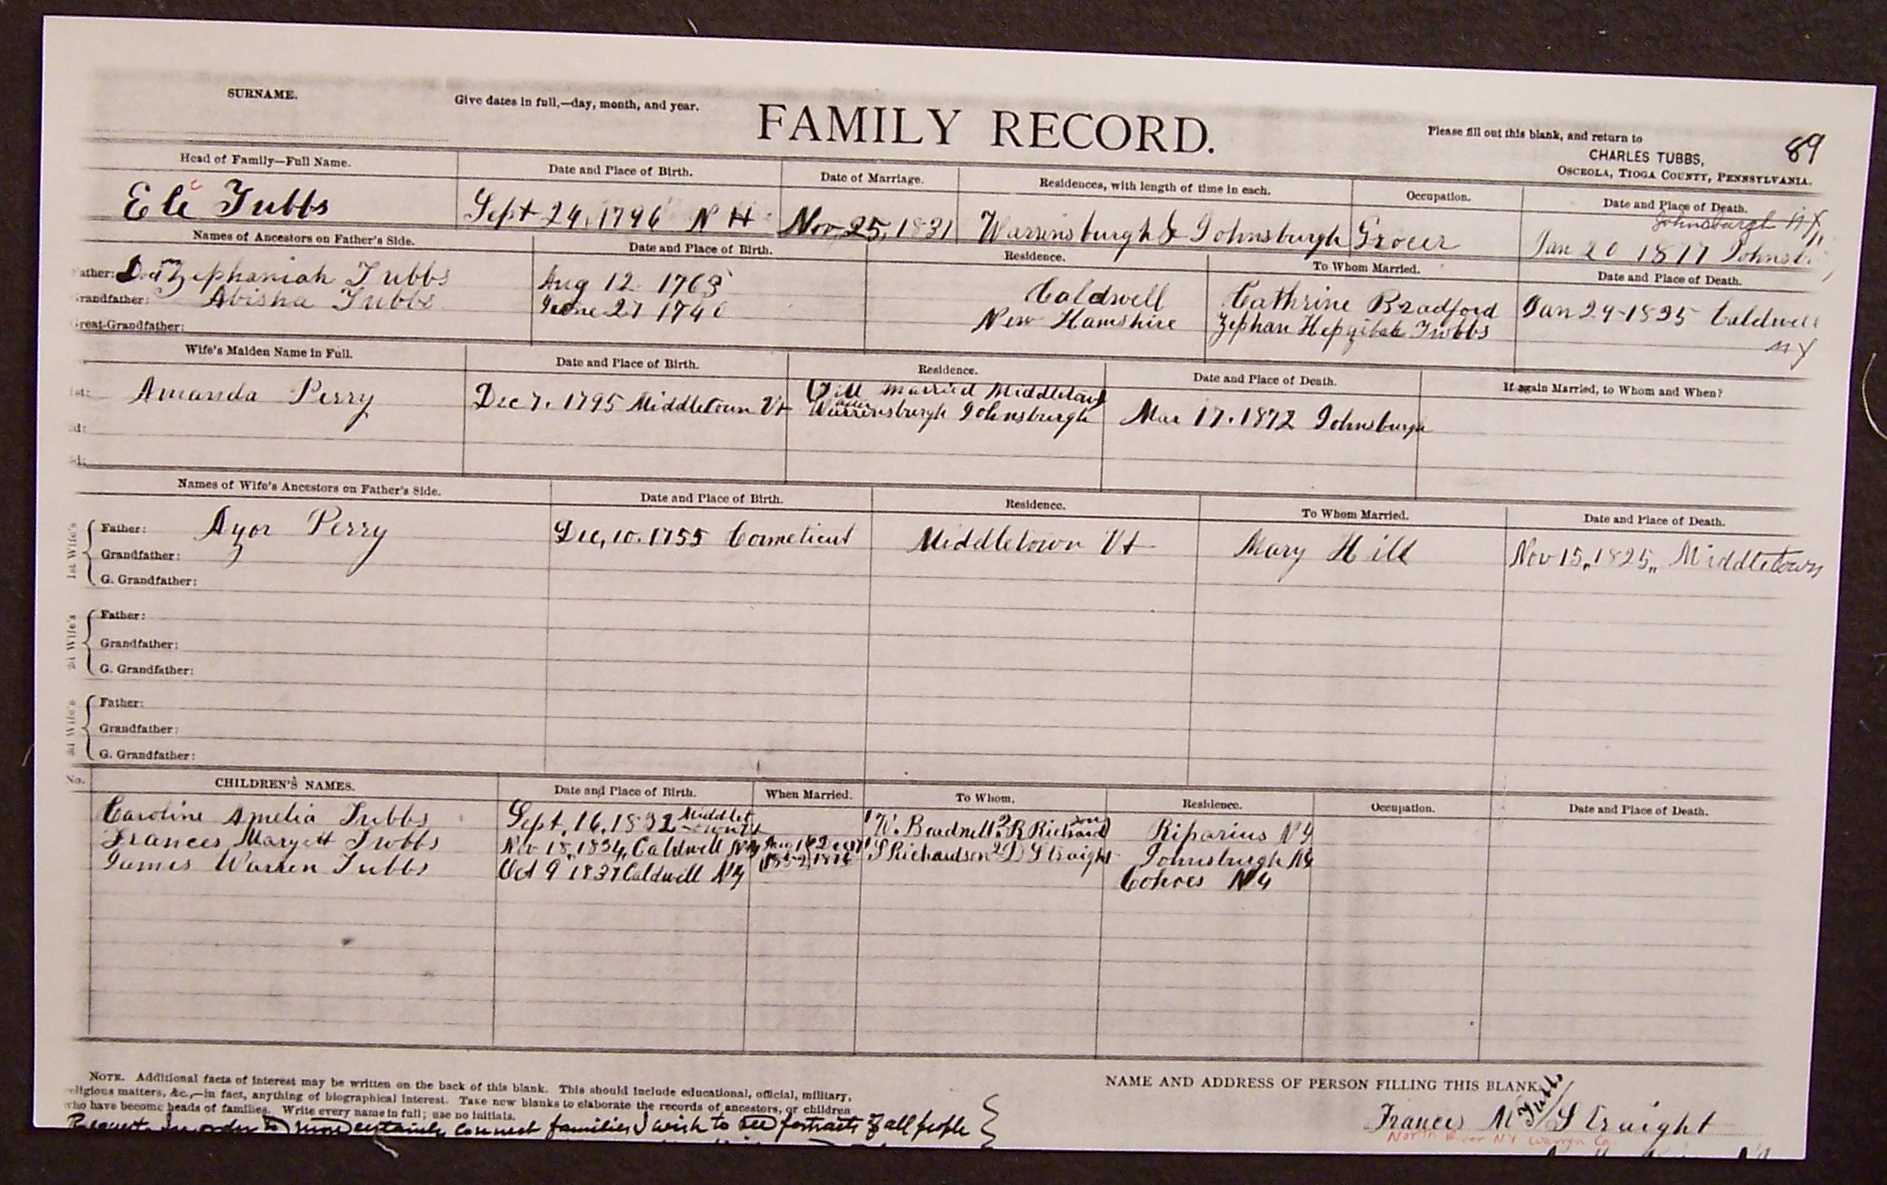 SURNAME.
Give dates in full,—day, month, and year.
FAMILY RECORD.
Please fill out this blank, and return to
CHARLES TUBBS,
OSCEOLA, TIOGA COUNTY, PENNSYLVANIA.
89
Head of Family—Full Name. Date and Place of Birth. Date of Marriage. Residences, with length of time in each. Occupation. Date and Place of Death.
Johnsburgh NY
Eli Tubbs Sept 24, 1796 N H Nov, 25, 1831 Warrinsburgh & Johnsburgh Grocer Jan 20 18
Names of Ancestors on Father's Side. Date and Place of Birth. Residence. To Whom Married. Date and Place of Death.
Father: Zephaniah Tubbs Aug 12 1763 Caldwell Cathrine Bradford Jan 29-1835 Caldwell
NY
Grandfather: Abisha Tubbs June 27 174 New Hamshire Zephan Hepzibah Tubbs
Great-Grandfather:
Wife's Maiden Name in Full. Date and Place of Birth. Residence. Date and Place of Death. If again Married, to Whom and When?
1st: Amanda Perry Dec 7, 1795 Middletown Vt Till married Middletown
after Warrensburgh Johnsburgh Mar 17, 1872 Johnsburgh
2d:
3d:
Names of Wife's Ancestors on Father's Side. Date and Place of Birth. Residence. To Whom Married. Date and Place of Death.
1st Wife's
Father: Azor Perry Dec, 10, 1755 Conneticut Middletown Vt Mary Hill Nov 15, 1825, Middletown
Grandfather:
G. Grandfather:
2d Wife's
Father:
Grandfather:
G. Grandfather:
3d Wife's
Father:
Grandfather:
G. Grandfather:
No. CHILDREN'S NAMES. Date and Place of Birth. When Married. To Whom. Residence. Occupation. Date and Place of Death.
Caroline Amelia Tubbs Sept, 16, 1832 Middletown Vt 1 W. Bradnell 2 R Richardson Riparius NY
Frances Maryett Tubbs Nov 18, 1834, Caldwell NY 1 S Richardson 2 D Straight Johnsburgh NY
James Warren Tubbs Oct 9 1837 Caldwell NY Cohoes NY
NOTE. Additional facts of interest may be written on the back of this blank. This should include educational, official, military,
religious matters, &c.,—in fact, anything of biographical interest. Take new blanks to elaborate the records of ancestors, or children
who have become heads of families. Write every name in full; use no initials.
Request. In order to more certainly connect families I wish to see portraits of all people
NAME AND ADDRESS OF PERSON FILLING THIS BLANK.
Frances M Tubbs Straight
North River NY Warren Co.